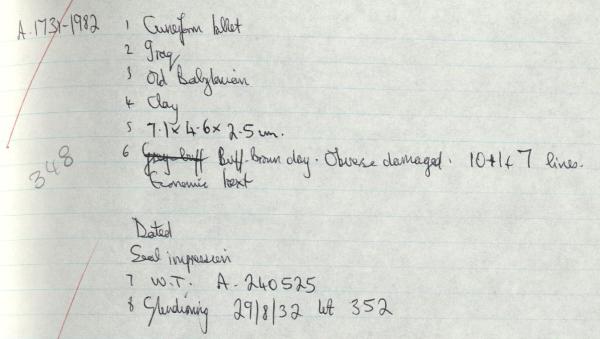 A.1731-1982 1 Cuneiform tablet
2 Iraq
3 Old Babylonian
4 Clay
5 7.1 x 4.6 x 2.5 cm.
348
6 Grey-buff Buff-Brown clay. Obverse damaged. 10+1+7 lines.
Economic text
Dated
Seal impression
7 W.T. A-240525
8 Glendining 29/8/32 lot 352